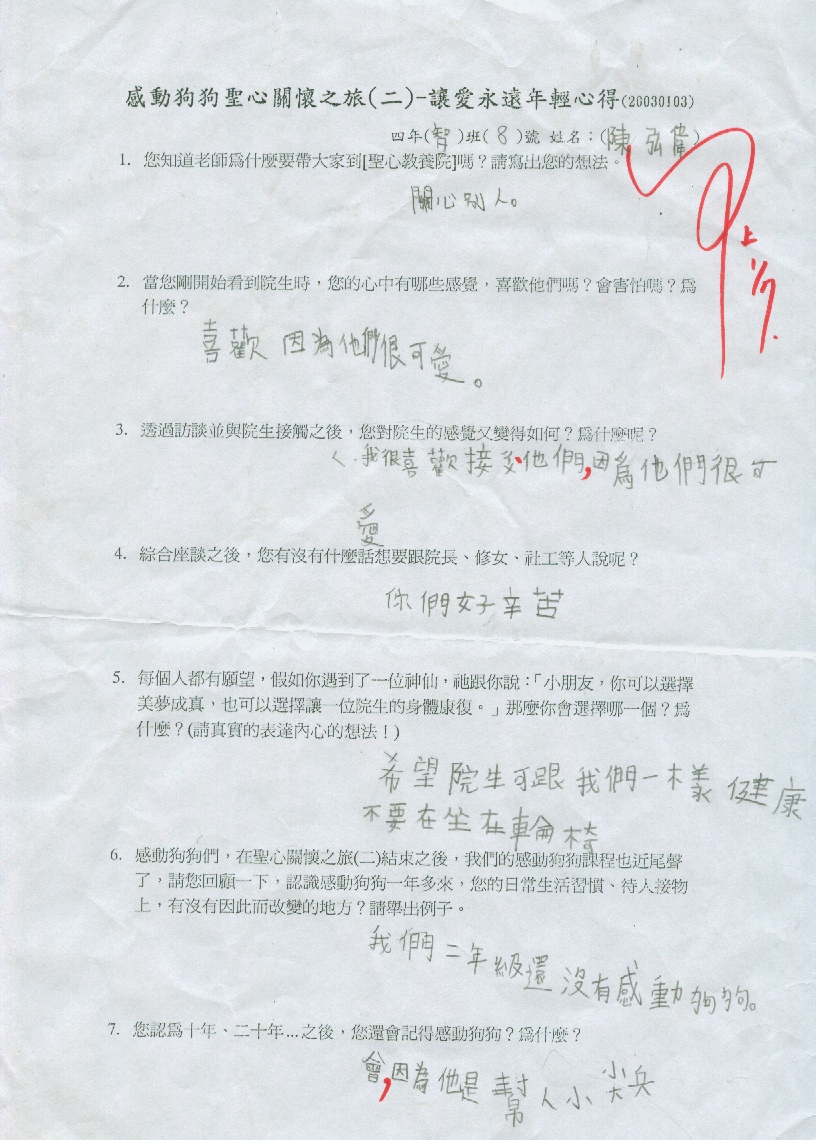 感動狗狗聖心關懷之旅(二)-讓愛永遠年輕心得(20030103)
四年(智)班(8)號 姓名：(陳弘偉)
1. 您知道老師爲什麼要帶大家到[聖心教養院]嗎？請寫出您的想法。
關心別人。
上
1/7.
2. 當您剛開始看到院生時，您的心中有哪些感覺，喜歡他們嗎？會害怕嗎？爲
什麼？
喜歡 因為他們很可愛。
3. 透過訪談並與院生接觸之後，您對院生的感覺又變得如何？爲什麼呢？
我很喜歡接近他們,因爲他們很可
愛
4. 綜合座談之後，您有沒有什麼話想要跟院長、修女、社工等人說呢？
你們好辛苦
5. 每個人都有願望，假如你遇到了一位神仙，祂跟你說：「小朋友，你可以選擇
美夢成真，也可以選擇讓一位院生的身體康復。」那麼你會選擇哪一個？爲
什麼？(請真實的表達內心的想法！)
希望院生可跟我們一樣健康
不要在坐在輪椅
6. 感動狗狗們，在聖心關懷之旅(二)結束之後，我們的感動狗狗課程也近尾聲
了，請您回顧一下，認識感動狗狗一年多來，您的日常生活習慣、待人接物
上，有沒有因此而改變的地方？請舉出例子。
我們二年級還沒有感動狗狗。
7. 您認爲十年、二十年...之後，您還會記得感動狗狗？爲什麼？
會,因為他是幫人小尖兵